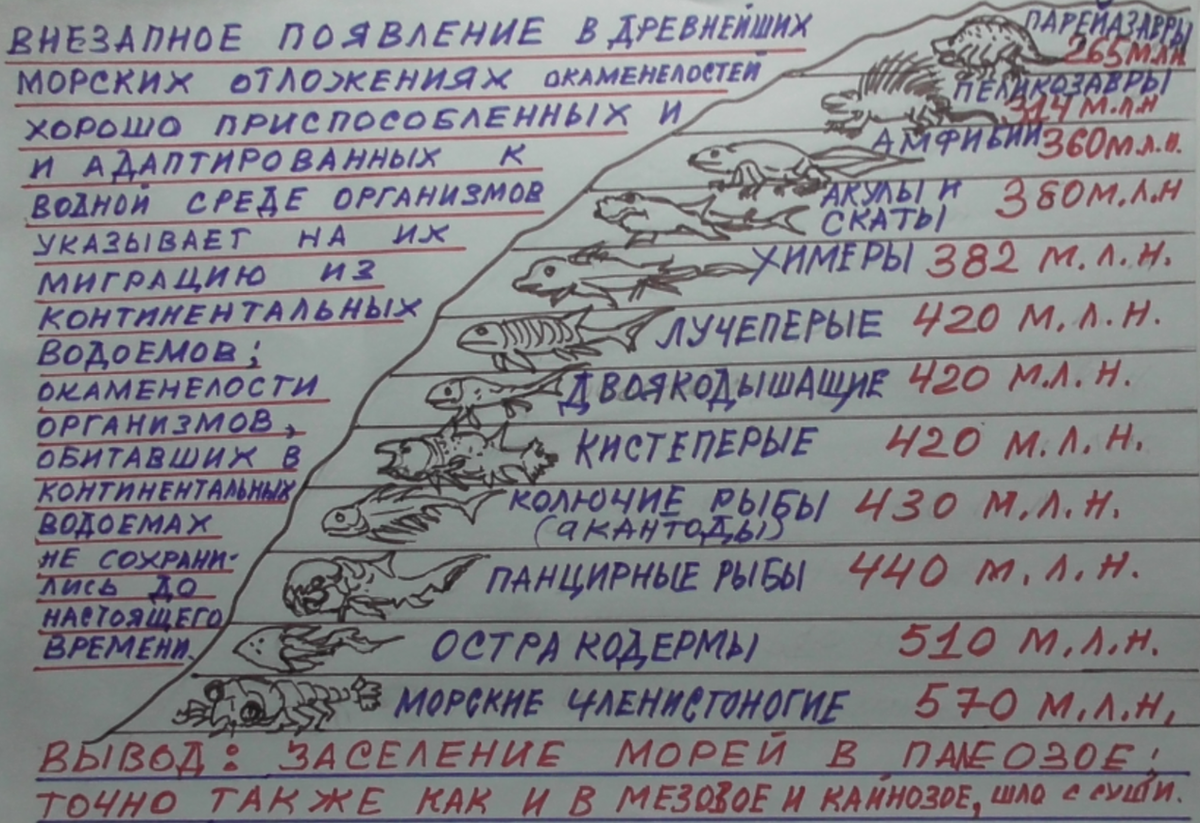 ВНЕЗАПНОЕ ПОЯВЛЕНИЕ В ДРЕВНЕЙШИХ
МОРСКИХ ОТЛОЖЕНИЯХ ОКАМЕНЕЛОСТЕЙ
ХОРОШО ПРИСПОСОБЛЕННЫХ И
И АДАПТИРОВАННЫХ К
ВОДНОЙ СРЕДЕ ОРГАНИЗМОВ
УКАЗЫВАЕТ НА ИХ
МИГРАЦИЮ ИЗ
КОНТИНЕНТАЛЬНЫХ
ВОДОЕМОВ;
ОКАМЕНЕЛОСТИ
ОРГАНИЗМОВ,
ОБИТАВШИХ В
КОНТИНЕНТАЛЬНЫХ
ВОДОЕМАХ
НЕ СОХРАНИ-
ЛИСЬ ДО
НАСТОЯЩЕГО
ВРЕМЕНИ.
ПАРЕЙАЗАВРЫ
265 М.Л.Н.
ПЕЛИКОЗАВРЫ
314 М.Л.Н
АМФИБИИ 360 М.Л.Н.
АКУЛЫ И
СКАТЫ 380 М.Л.Н
ХИМЕРЫ 382 М.Л.Н.
ЛУЧЕПЕРЫЕ 420 М.Л.Н.
ДВОЯКОДЫШАЩИЕ 420 М.Л.Н.
КИСТЕПЕРЫЕ 420 М.Л.Н.
КОЛЮЧИЕ РЫБЫ 430 М.Л.Н.
(аКАНТОДЫ)
ПАНЦИРНЫЕ РЫБЫ 440 М.Л.Н.
ОСТРАКОДЕРМЫ 510 М.Л.Н.
МОРСКИЕ ЧЛЕНИСТОНОГИЕ 570 М.Л.Н.
ВЫВОД: ЗАСЕЛЕНИЕ МОРЕЙ В ПАЛЕОЗОЕ;
ТОЧНО ТАКЖЕ КАК И В МЕЗОЗОЕ И КАЙНОЗОЕ, ШЛО С СУШИ.